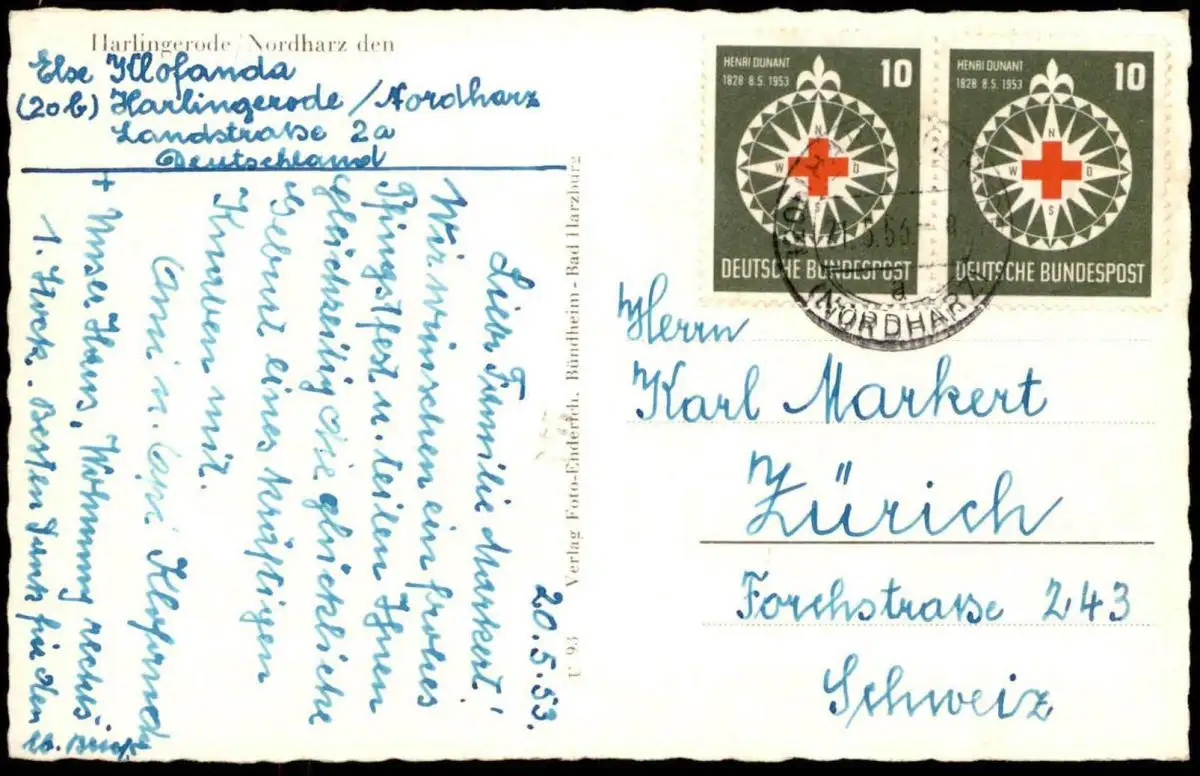 Harlingerode/Nordharz den
Else Klofanda
(20b) Harlingerode/Nordharz
Landstraße 2a
Deutschland
20.5.53.
Liebe Familie Markert!
Wir wünschen ein frohes
Pfingstfest u. teilen Ihnen
gleichzeitig die glückliche
Geburt eines kräftigen
Knaben mit.
Klofanda
+ Unser Haus, Wohnung rechts
1. Stock. Besten Dank für den
lb. Brief.
U 93 Verlag Foto-Enderich, Bündheim - Bad Harzburg
HENRI DUNANT
1828 8.5.1953
10
N
W O
S
DEUTSCHE BUNDESPOST
HENRI DUNANT
1828 8.5.1953
10
N
W O
S
DEUTSCHE BUNDESPOST
a
(NORDHARZ)
Herrn
Karl Markert
Zürich
Forchstraße 243
Schweiz